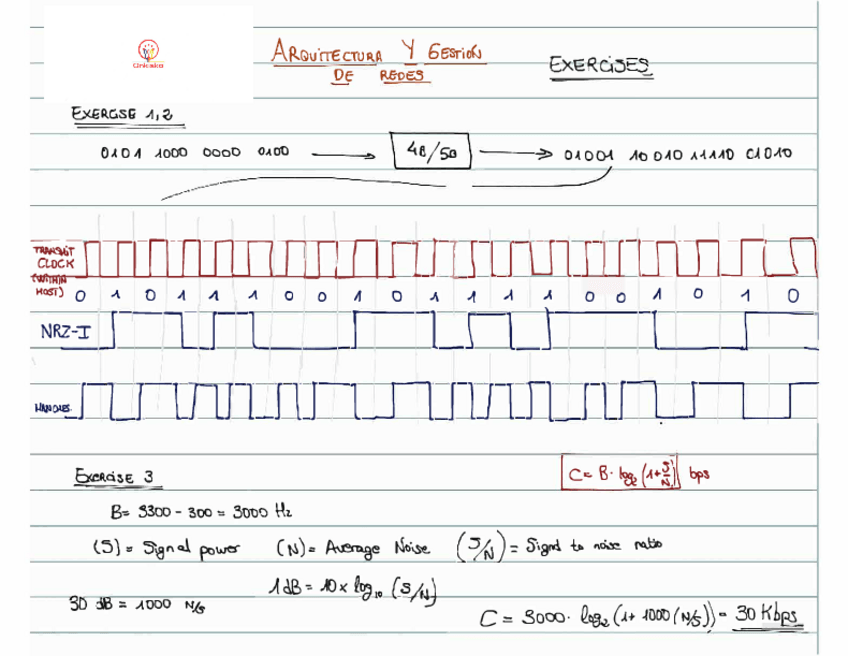 Clinicaloca
ARQUITECTURA Y GESTIÓN
DE REDES
EXERCISES
EXERCISE 1,2
0101 1000 0000 0100 4B/5B 01001 10010 11110 01010
TRANSMIT
CLOCK
(WITHIN
HOST)
0 1 0 1 1 1 0 0 1 0 1 1 1 1 0 0 1 0 1 0
NRZ-I
EXERCISE 3
C = B · log2 (1 + S/N) bps
B = 3300 - 300 = 3000 Hz
(S) = Signal power (N) = Average Noise (S/N) = Signal to noise ratio
1 dB = 10 x log10 (S/N)
30 dB = 1000 N/S
C = 3000 · log2 (1 + 1000 (N/S)) = 30 Kbps